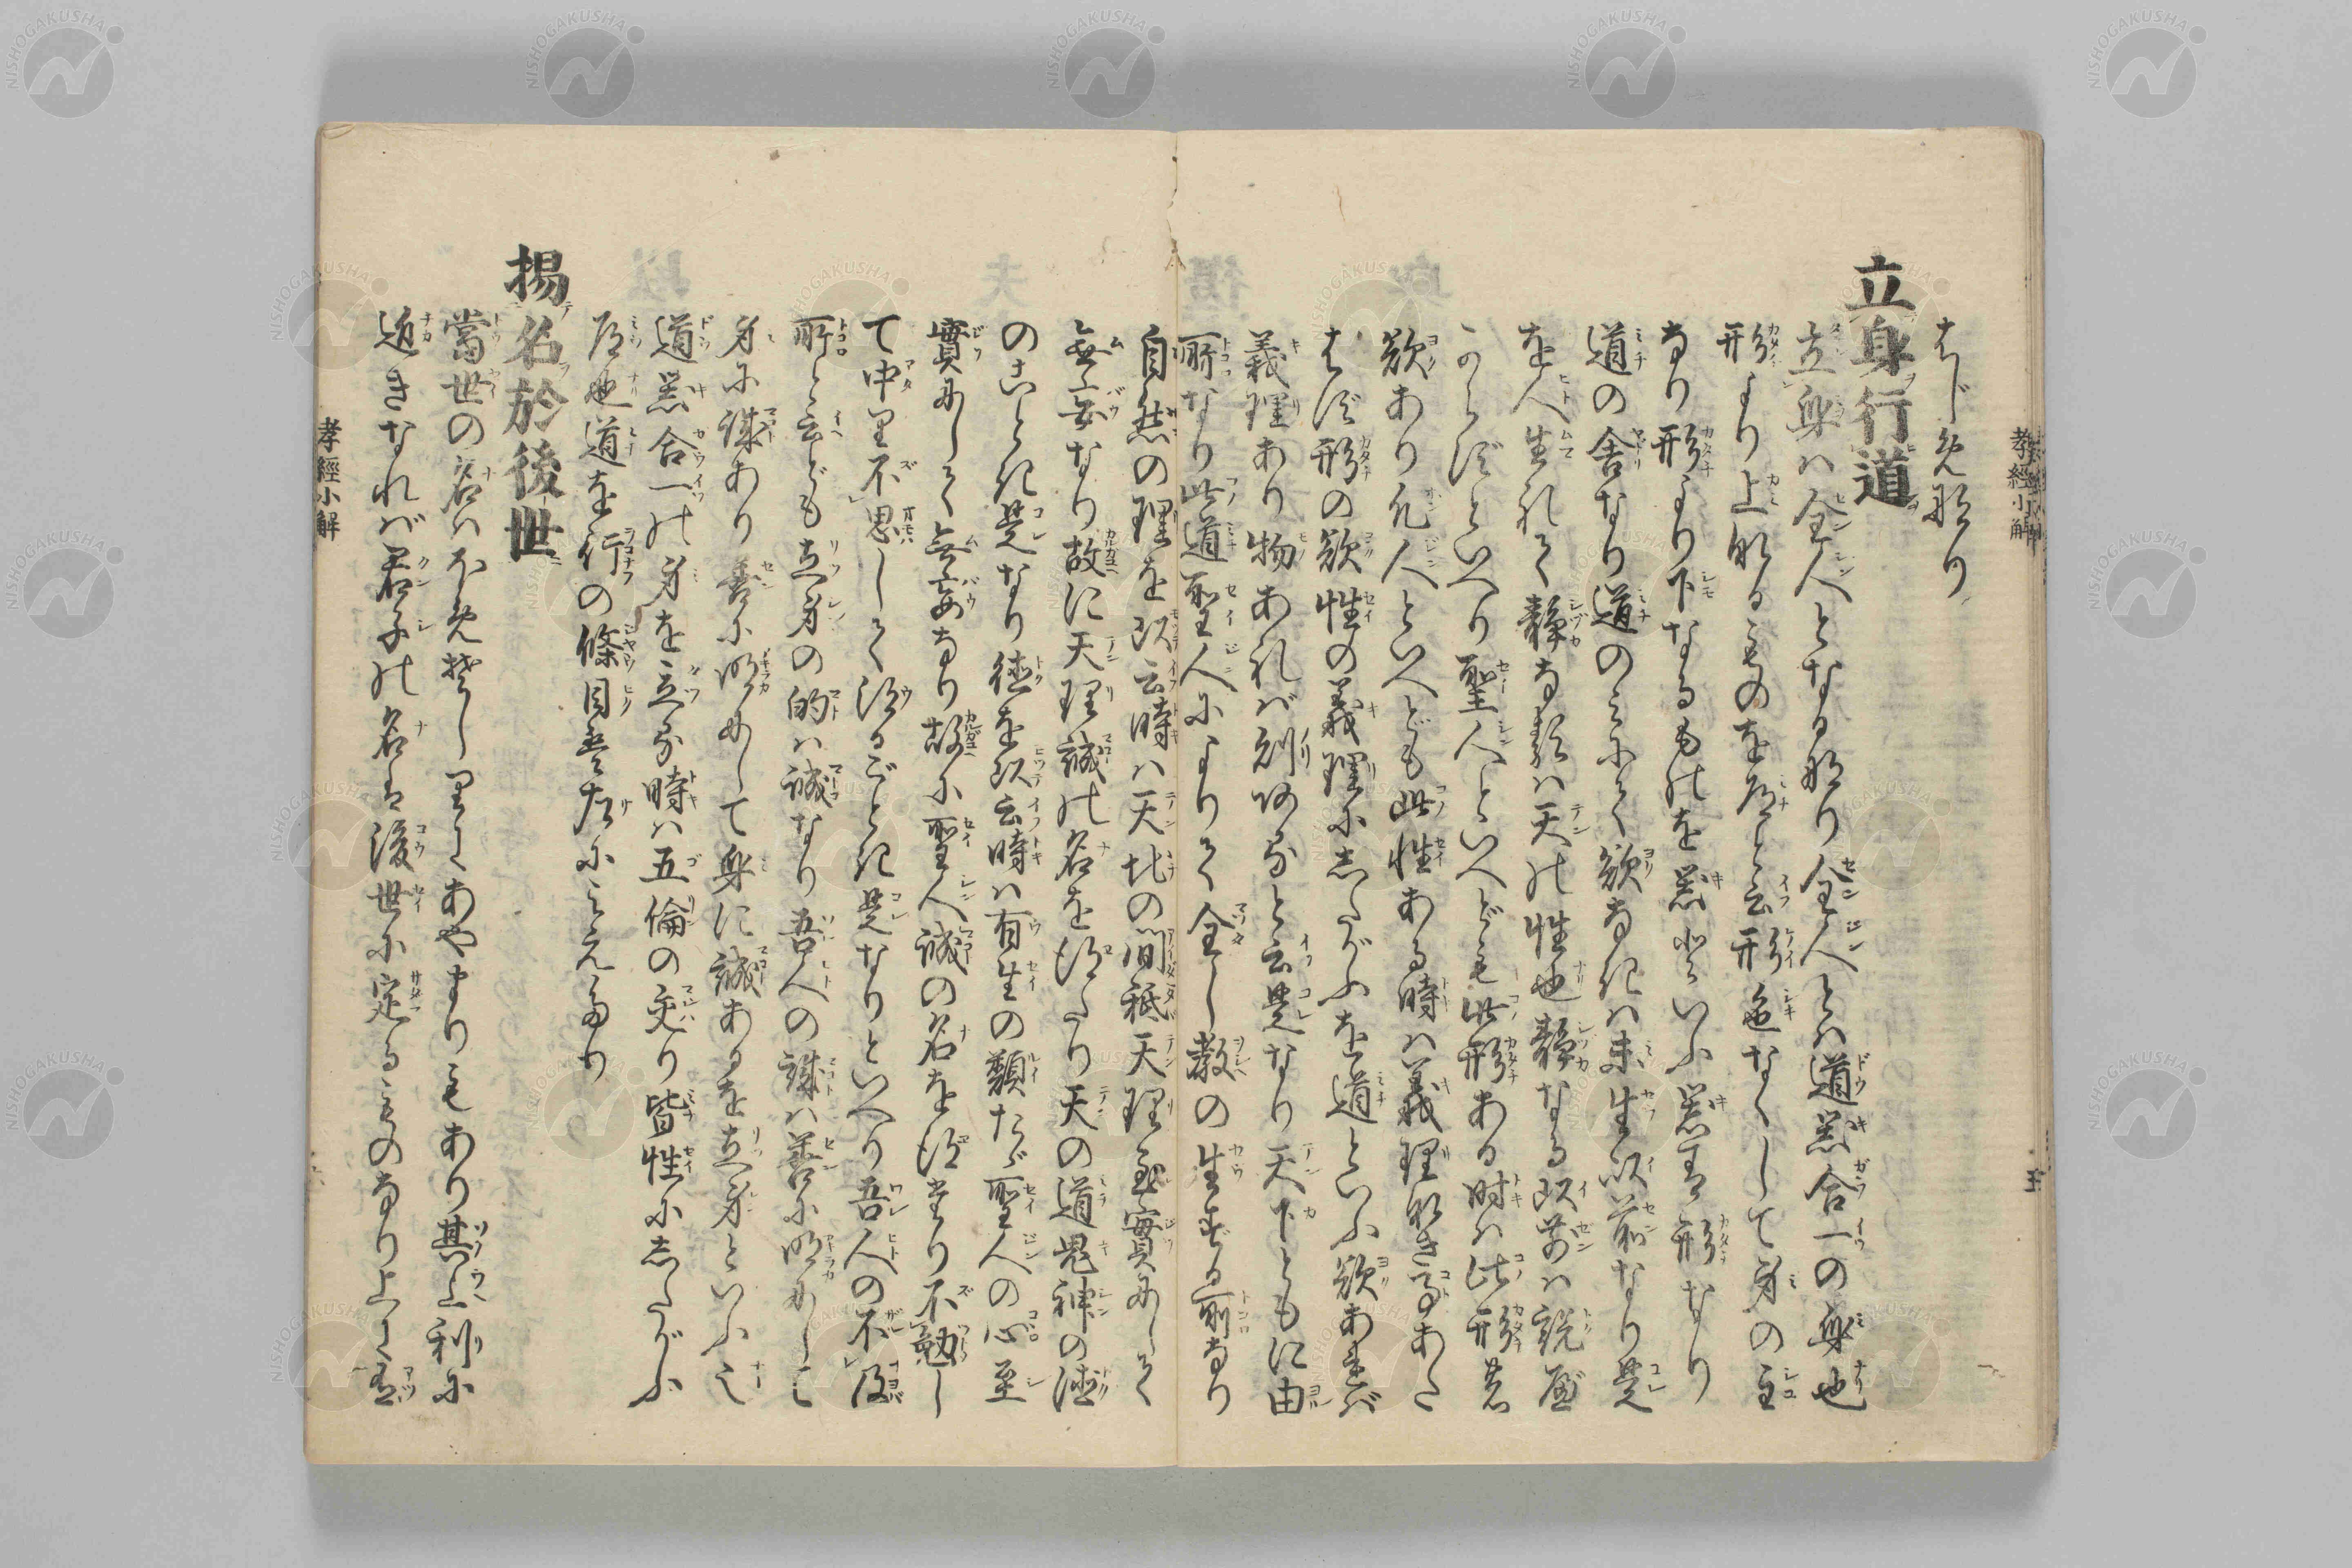 はじめ也
立身行道
立身は全人となる也全人とは道器合一の身也
形より上なるものを道と云形色なくして身の主
なり形より下なるものを器といふ器は形なり
道の舎なり道のみにて欲なきは未生以前なり是
を人生れて静なるは天の性也静なる以前は説べ
からずといへり聖人といへども此形ある時は此形の
欲あり凡人といへども此性ある時は義理なき事あた
はず形の欲性の義理にしたがふを道といふ欲あれば
義理あり物あれば則ありと云是なり天下ともに由
所なり此道聖人によりて全し教の生ずる所なり
自然の理を以云時は天地の間祗天理至實にして
無妄なり故に天理誠の名を得たり天の道鬼神の徳
のごとき是なり徳を以云時は有生の類たゞ聖人の心至
實にして無妄なり故に聖人誠の名を得たり不勉し
て中り不思して得るごとき是なりといへり吾人の不及
所と云ども立身の的は誠なり吾人の誠は善に明にしこ
身に誠あり善に明めして身に誠あるを立身といふ也
道器合一の身を立る時は五倫の交り皆性にしたがふ
道也道を行の條目は左にみえたり
揚名於後世
當世の名はほめそしりにてあやまりもあり其上利に
近きなれば君子の名は後世に定るものなり上に有
孝經小解
孝經小解 五
NISHOGAKUSHA